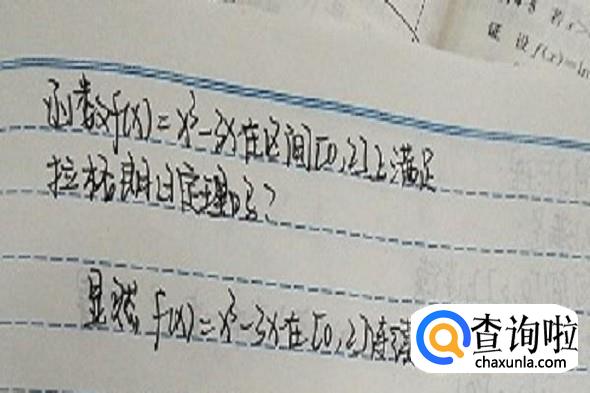 若 x>
证 设 f(x)=ln
函数f(x)=x³-3x在区间[0,2]上满足
拉格朗日定理吗?
显然 f(x)=x³-3x在[0,2]连续
查询啦
chaxunla.com